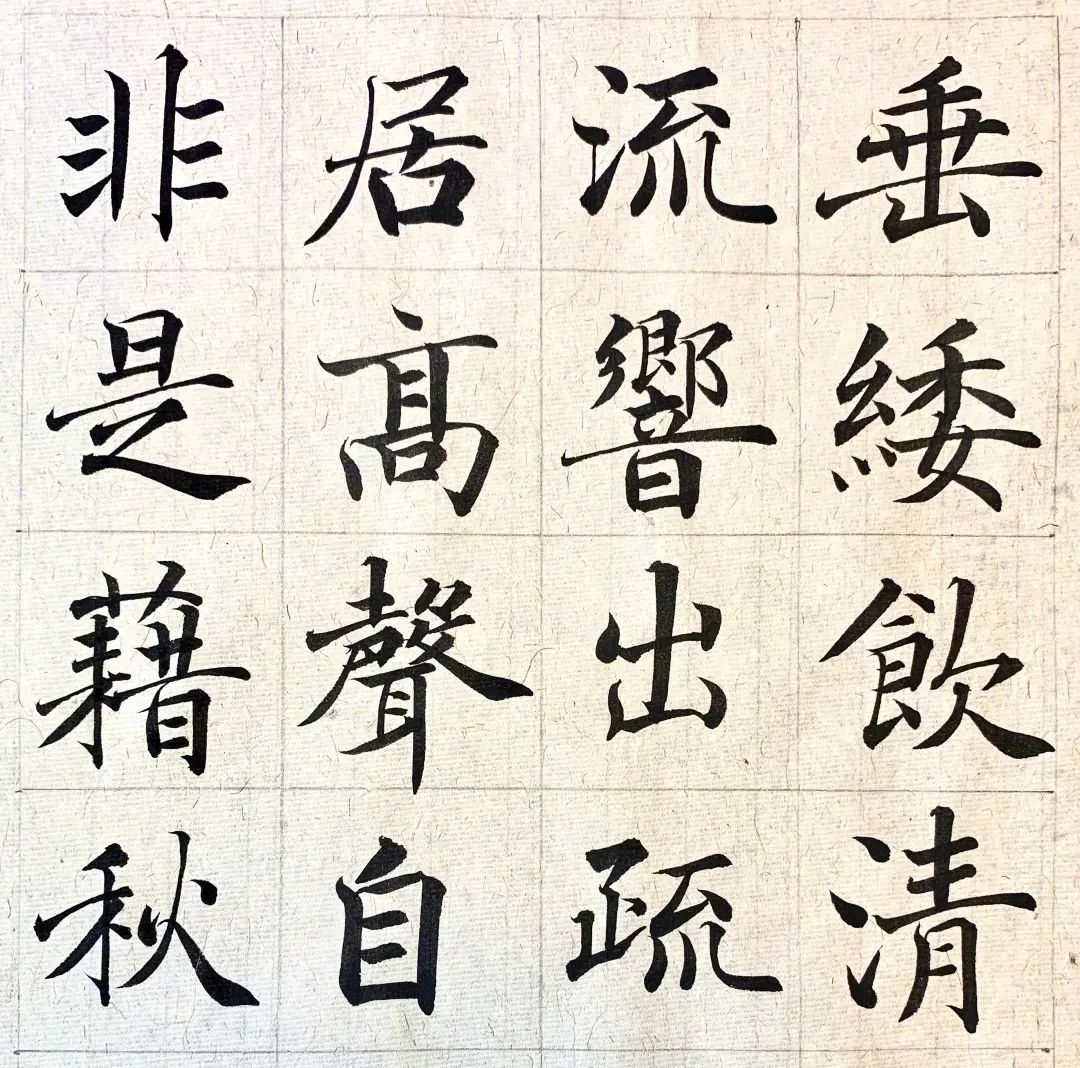 垂緌飲清
流響出疏
居高聲自
非是藉秋